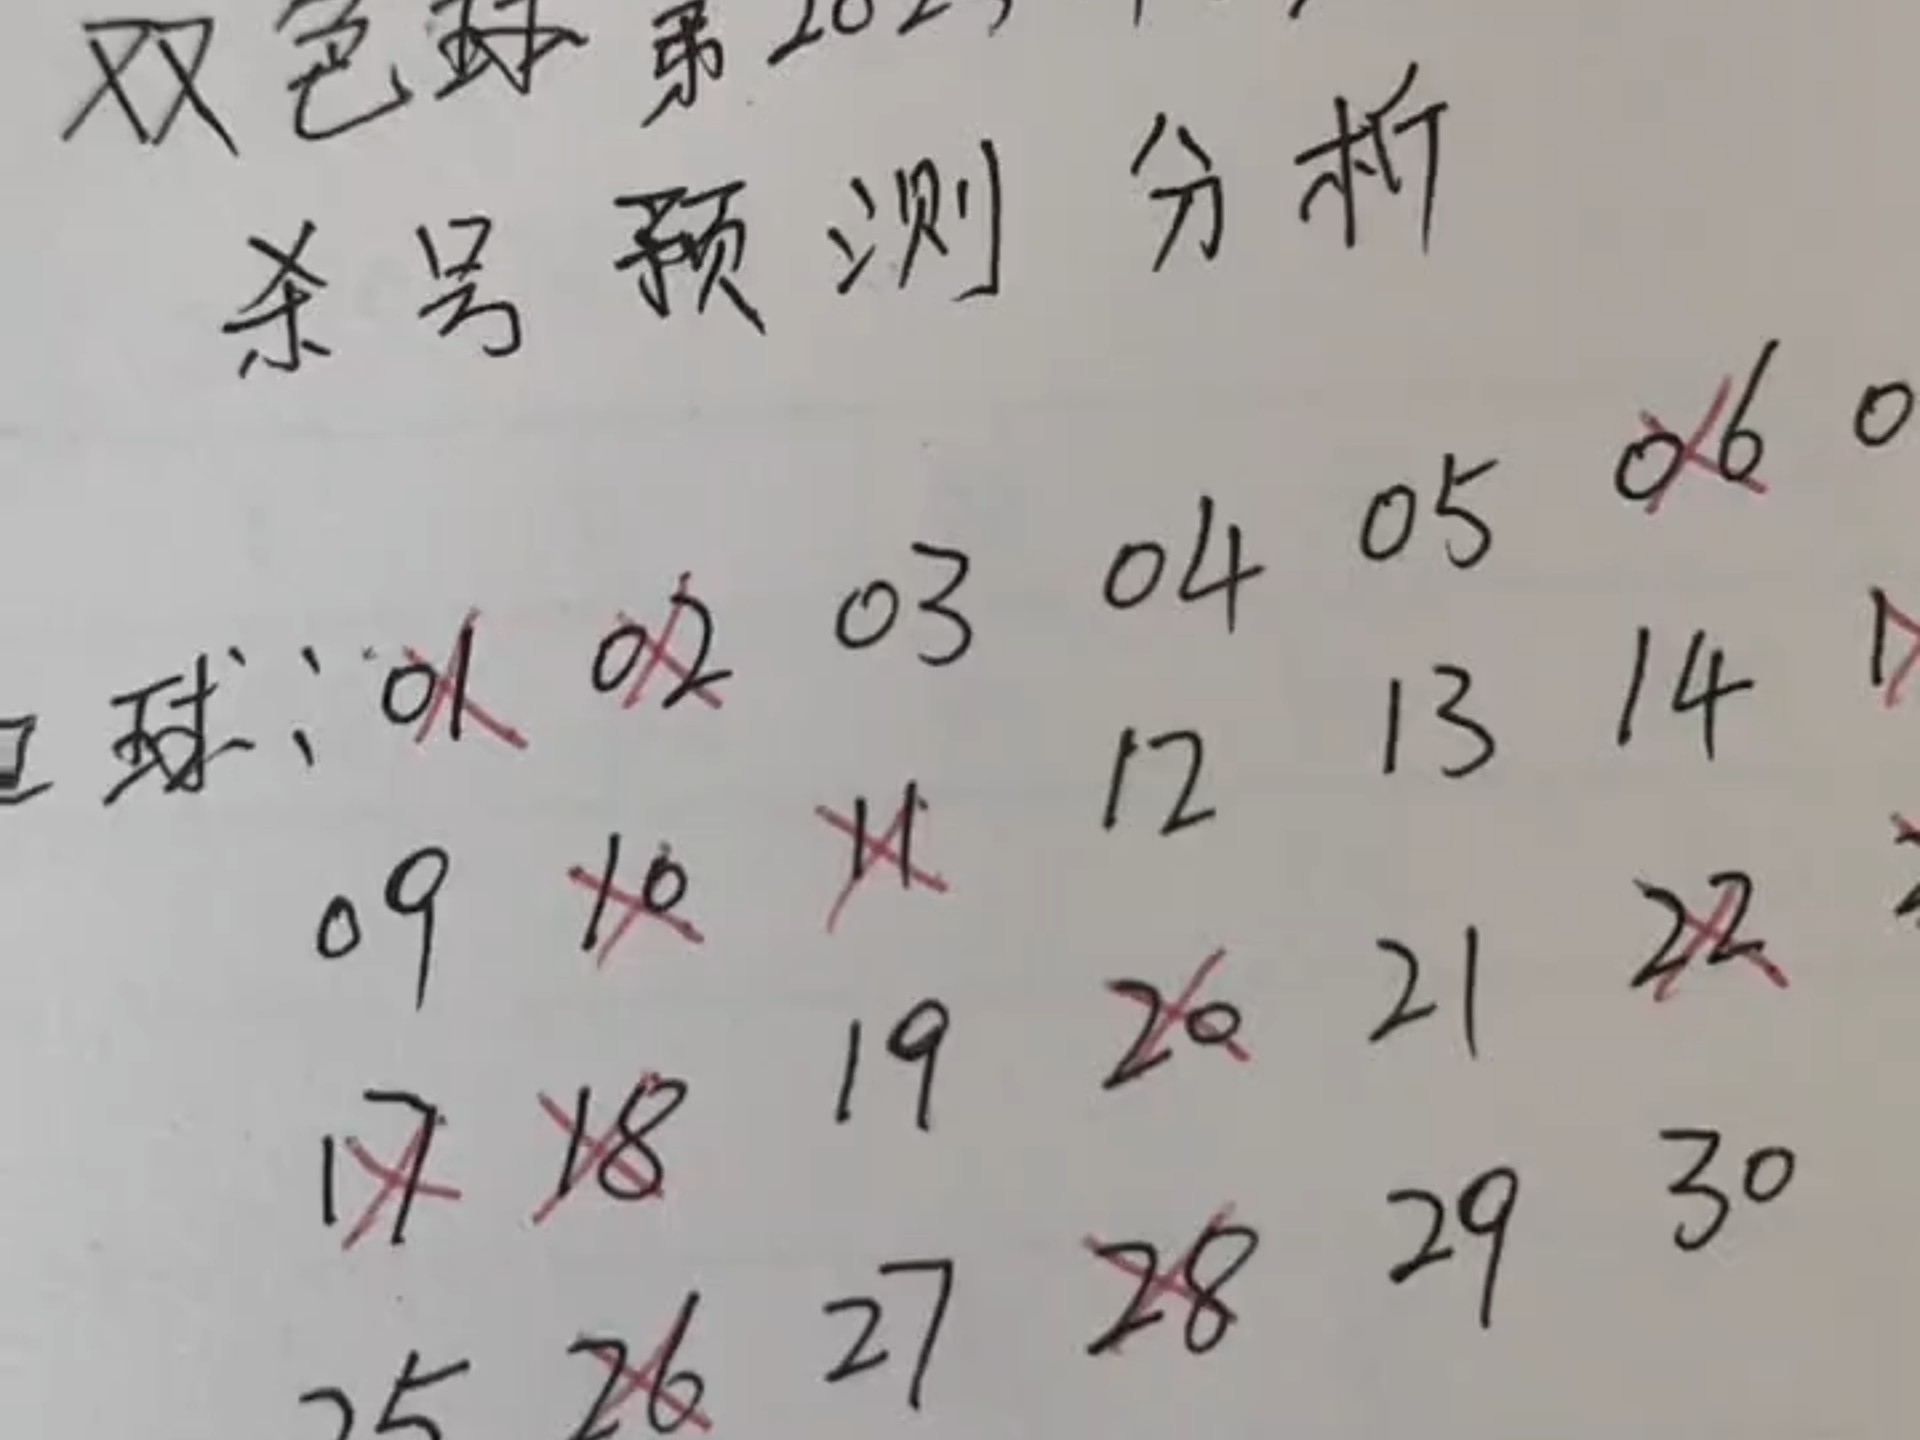 双色球第202
杀号预测分析
球: 01 02 03 04 05 06 0
09 10 11 12 13 14 1
17 18 19 20 21 22 2
25 26 27 28 29 30